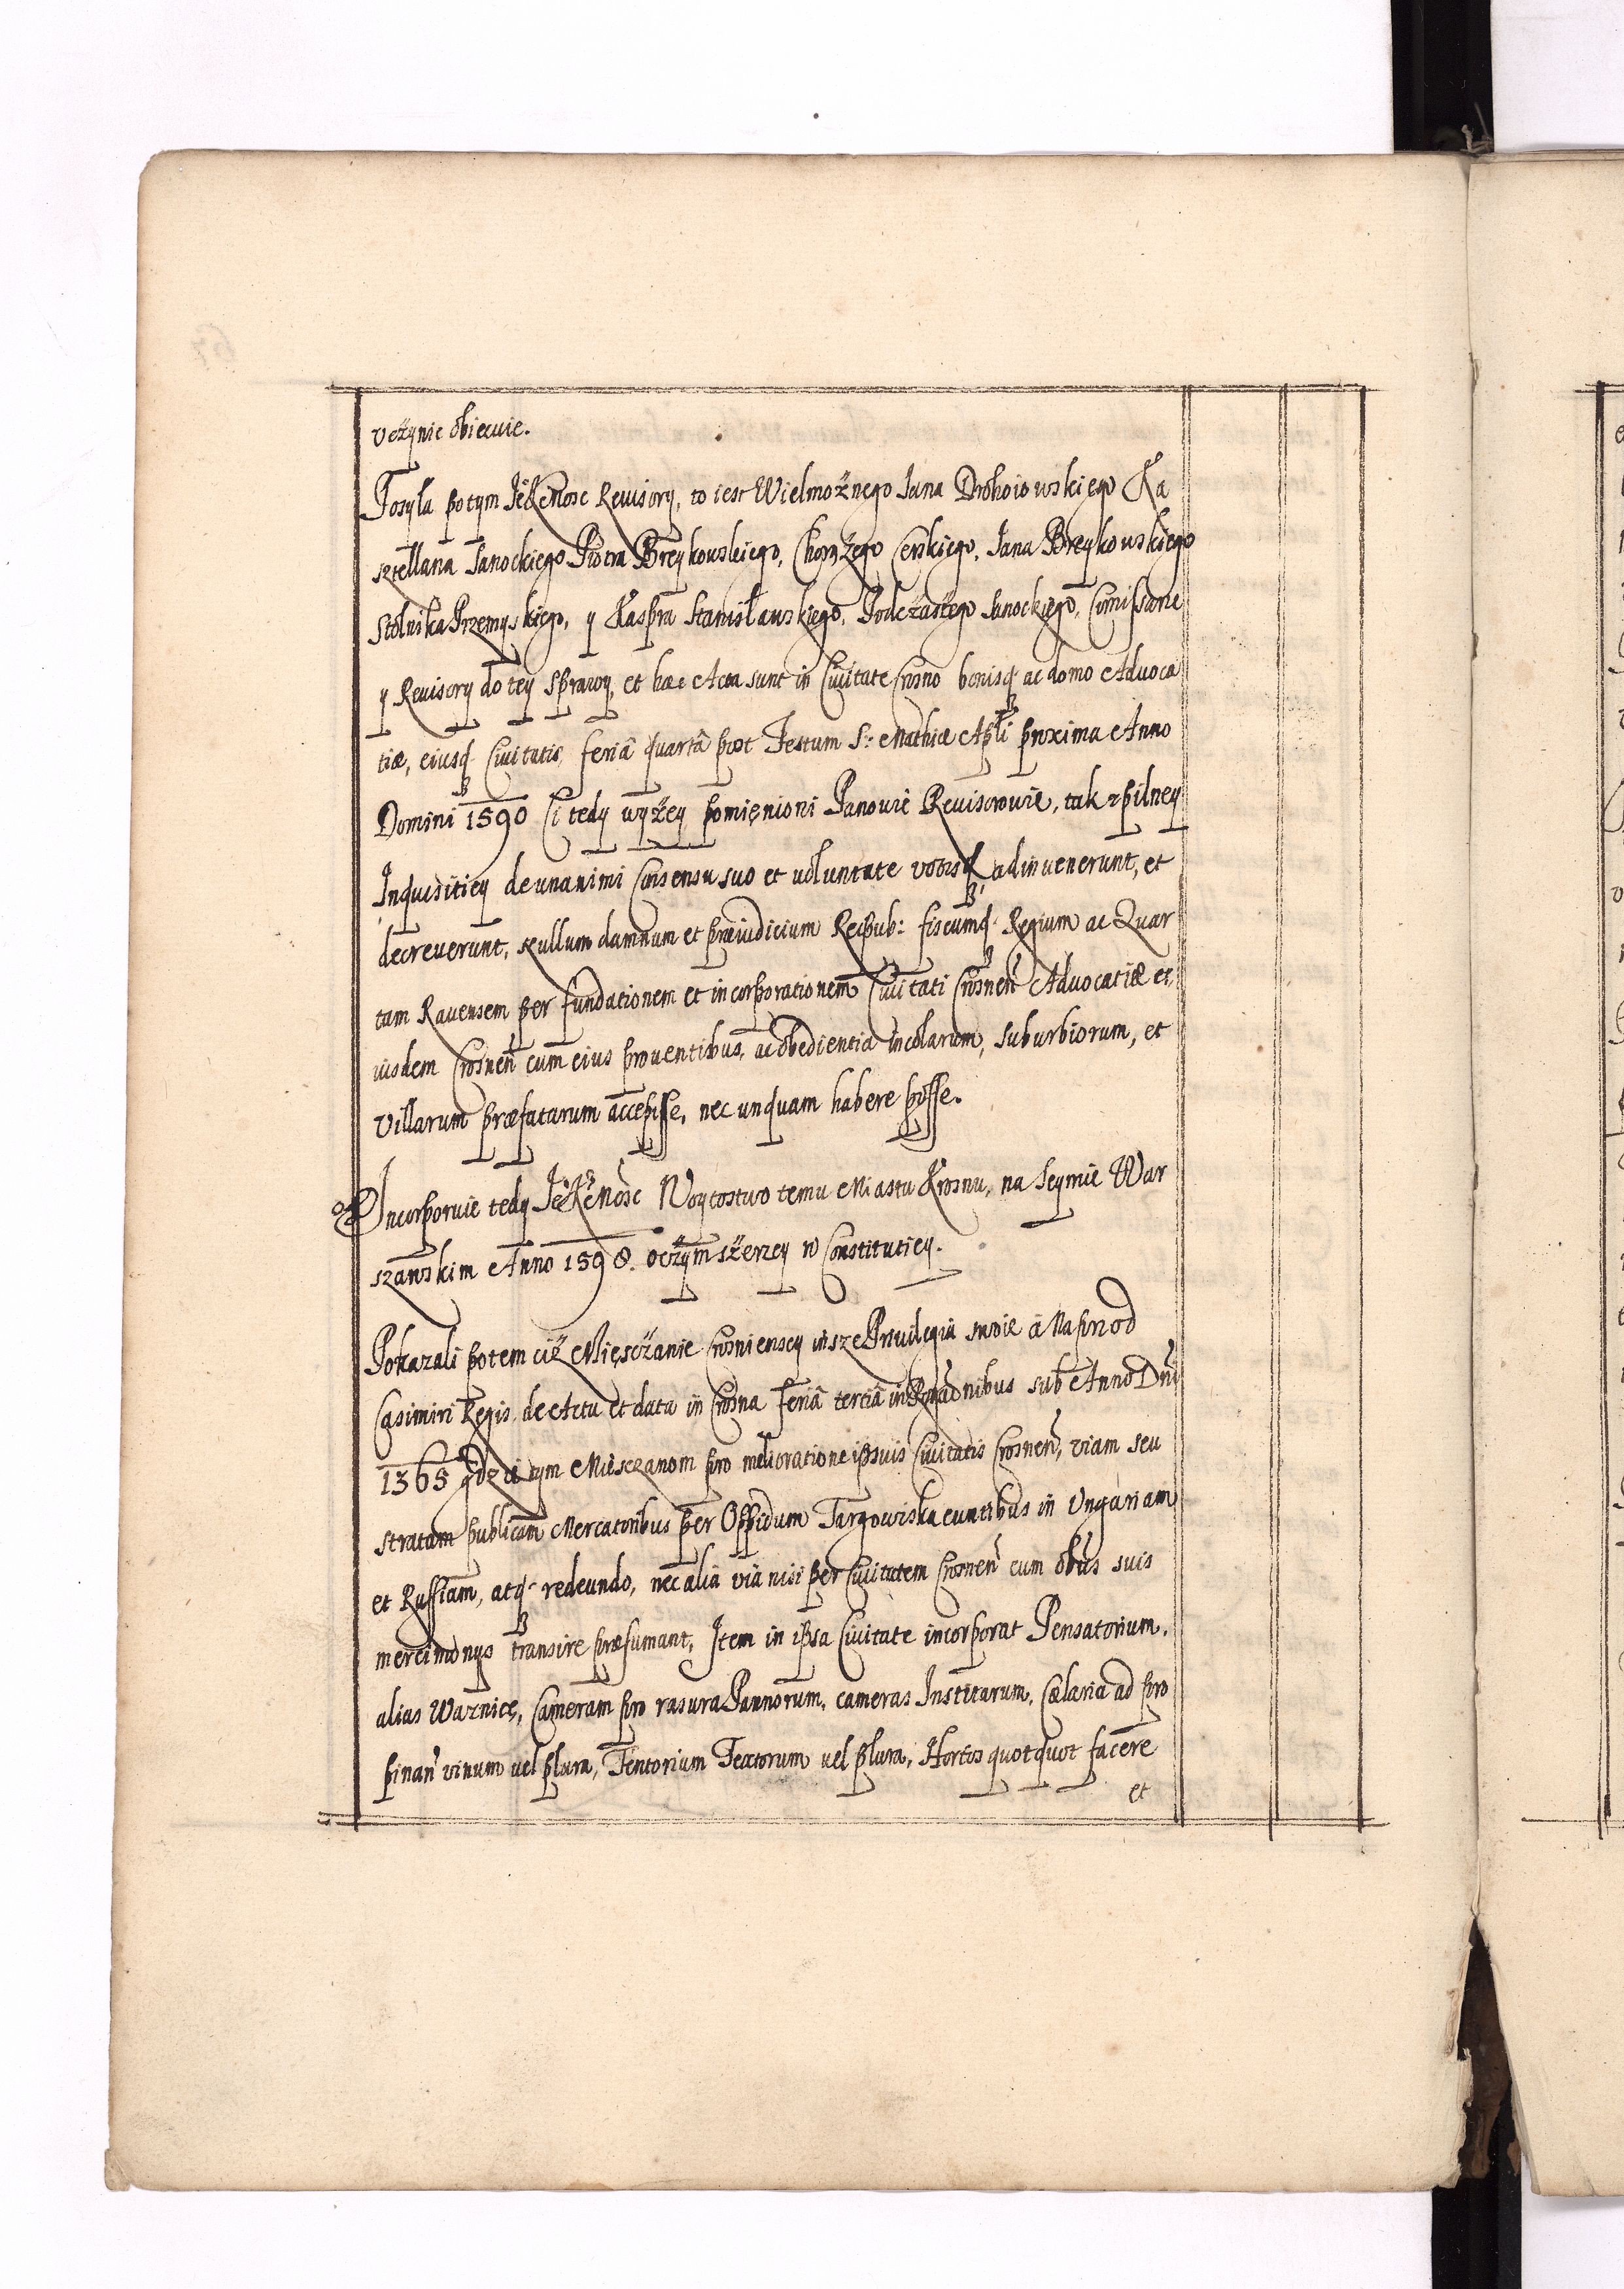 vczynic obiecuie.
Posyła potym JeKeMosc Reuisory, to iest Wielmożnego Jana Drohoiowskiego Ka
sztellana Sanockiego Piotra Breykowskiego, Chorążego Cerskiego, Jana Breykowskiego
Stolnika Przemyskiego, y Kaspra Stanisławskiego, Podczaszego Sanockiego, Comissarze
y Reuisory do tey sprawy, et hæc Acta sunt in Ciuitate Crosno bonisq ac domo Advoca
tiæ, eiusq Ciuitatis, feriâ quartâ post Festum S: Mathiæ Apli proxima Anno
Domini 1590 Ci tedy wyżey pomięnioni Panowie Reuisorowie, tak z pilney
Inquisitiey de unanimi Consensu suo et uoluntate votisq adinvenerunt, et
decreverunt, nullum damnum et præiudicium Reipub: fiscumq Regium ac Quar
tam Ravensem per fundationem et incorporationem Ciuitati Crosnen Advocatiæ e
iusdem Crosnen cum eius proventibus, ac obedientia Incolarum, suburbiorum, et
villarum præfatarum accepisse, nec unquam habere posse.
Incorporuie tedy JeKeMosc Woytostwo temu Miastu Krosnu, na Seymie War
szawskim Anno 1598. oczym szerzey w Constitutiey.
Pokazali potem ciż Miesczanie Crosnienscy insze Priuilegia swoie a Naprzod
Casimiri Regis, de Actu et data in Crosna Feriâ tertiâ in Rogaonibus sub Anno Dni
1365 gdzie tym Miesczanom pro melioratione ipsuis Ciuitatis Crosnen, viam seu
stratam publicam Mercatoribus per Oppidum Targowiska euntibus in Ungariam
et Russiam, atq redeundo, nec alia via nisi per Ciuitatem Crosnen cum obus suis
mercimonys transire præsumant, Item in ipsa Ciuitate incorporat Pensatorium,
alias Waznicę, Cameram pro rasura Pannorum, cameras Institarum, Cælaria ad pro
pinan vinum vel plura, Tentorium Textorum vel plura, Hortos quotquot facere
et